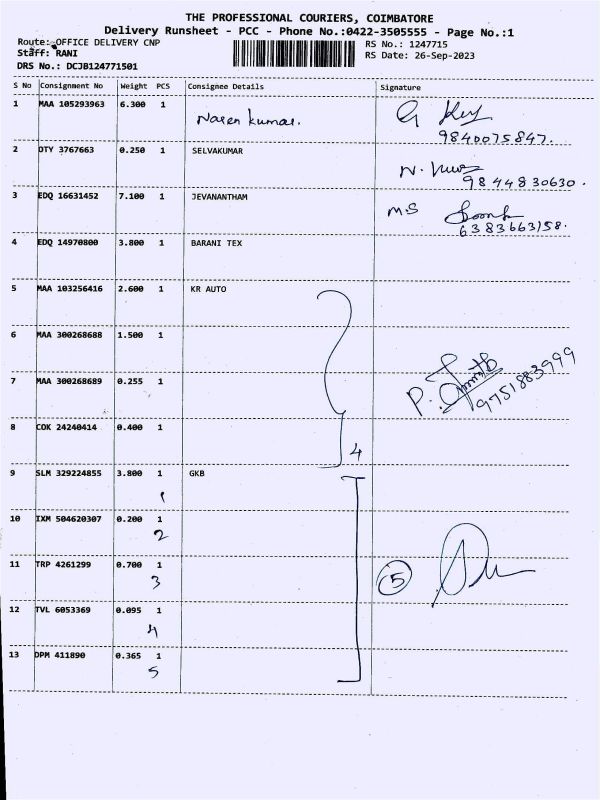 THE PROFESSIONAL COURIERS, COIMBATORE
Delivery Runsheet - PCC - Phone No.:0422-3505555 - Page No.:1
Route: OFFICE DELIVERY CNP
RS No.: 1247715
Staff: RANI
RS Date: 26-Sep-2023
DRS No.: DCJB124771501
S No Consignment No Weight PCS Consignee Details Signature
1 MAA 105293963 6.300 1 Naren kumar.
9840075847.
2 DTY 3767663 0.250 1 SELVAKUMAR
9844830630.
3 EDQ 16631452 7.100 1 JEVANANTHAM M.S
6383663158.
4 EDQ 14970800 3.800 1 BARANI TEX
5 MAA 103256416 2.600 1 KR AUTO
6 MAA 300268688 1.500 1
7 MAA 300268689 0.255 1 P. 9751883999
8 COK 24240414 0.400 1
4
9 SLM 329224855 3.800 1 GKB
1
10 IXM 504620307 0.200 1
2
11 TRP 4261299 0.700 1
3 5
12 TVL 6053369 0.095 1
4
13 DPM 411890 0.365 1
5